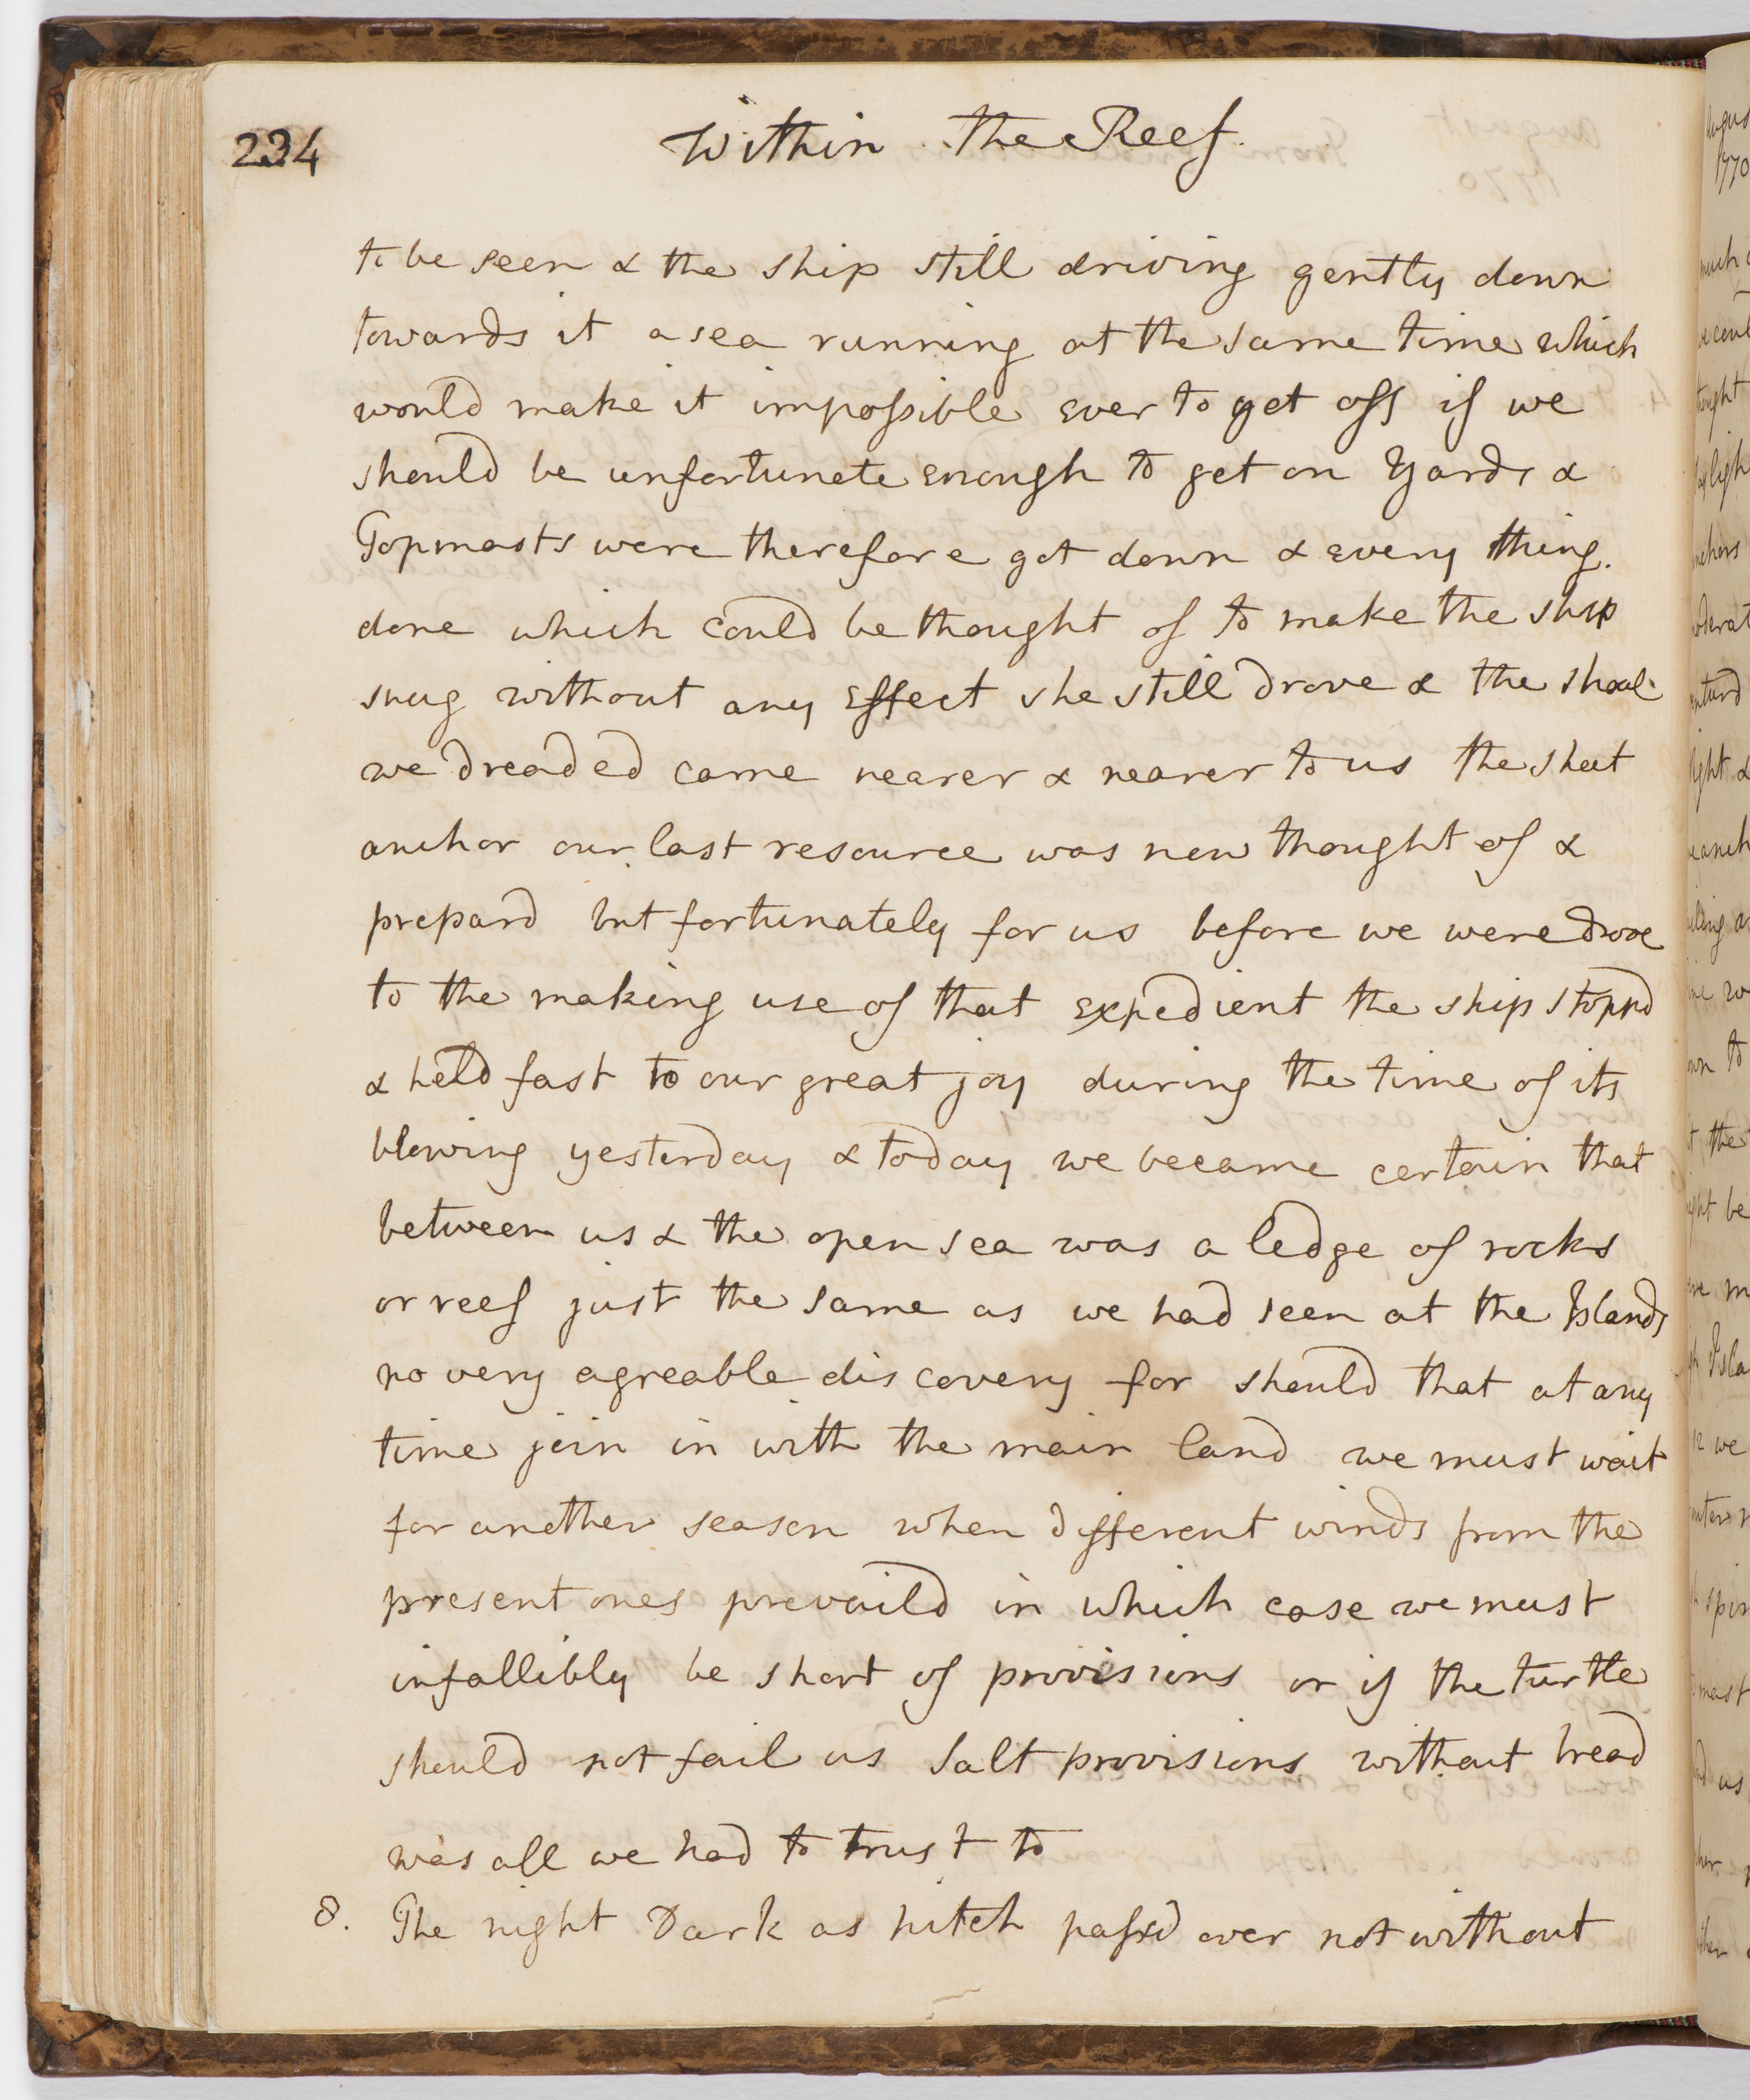 234
Within the Reef.
to be seen & the ship still driving gently down
towards it a sea running at the same time which
would make it impossible ever to get off if we
should be unfortunate enough to get on Yards &
Topmasts were therefore got down & every thing.
done which could be thought of to make the ship
snug without any Effect she still drove & the shoal
we dreaded came nearer & nearer to us the sheet
anchor our last resource was now thought of &
prepard but fortunately for us before we were drove
to the making use of that expedient the ship stoppd
& held fast to our great joy during the time of its
blowing yesterday & today we became certain that
between us & the open sea was a ledge of rocks
or reef just the same as we had seen at the Islands
no very agreable discovery for should that at any
time join in with the main land we must wait
for another season when different winds from the
present ones prevaild in which case we must
infallibly be short of provisions or if the turtle
should not fail us Salt provisions without bread
was all we had to trust to
8. The night Dark as pitch passd over not without
1770